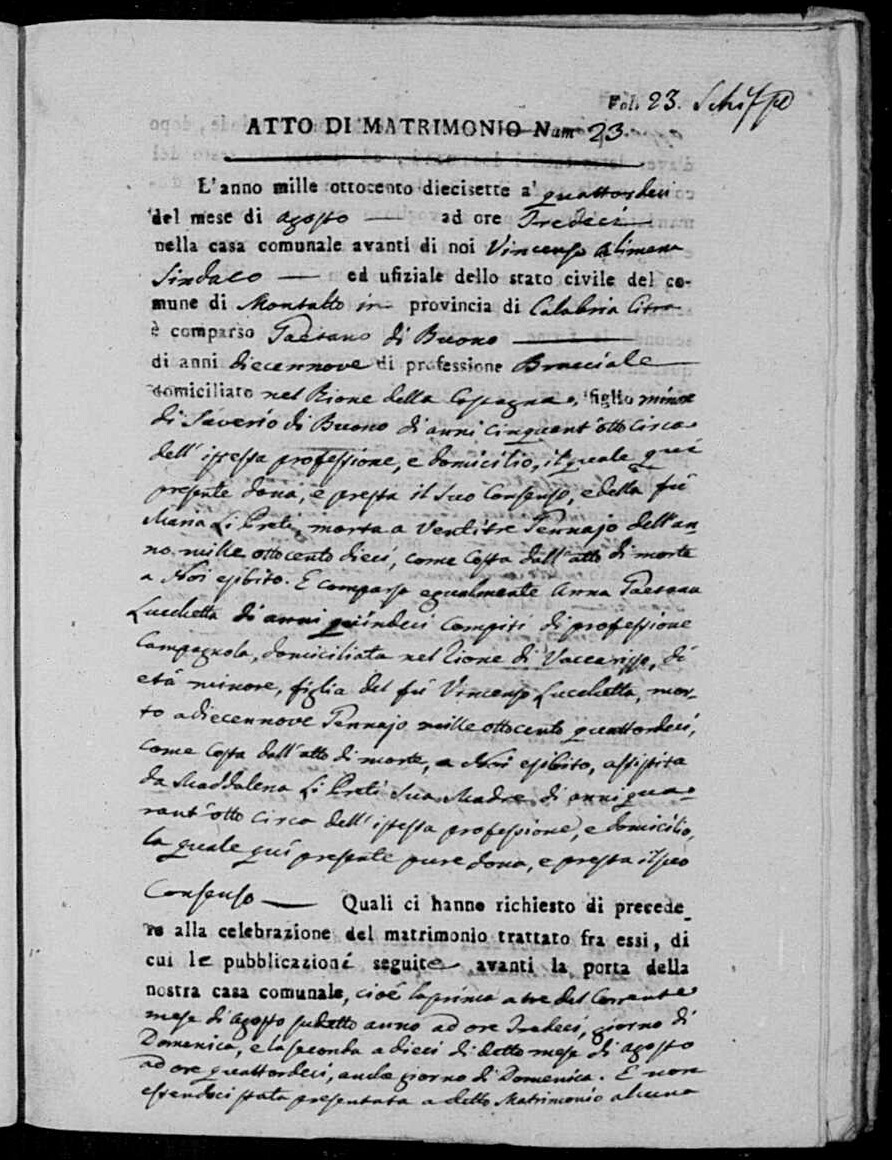 Fol. 23.
ATTO DI MATRIMONIO Num 23.
L'anno mille ottocento diecisette a' quattordeci
del mese di agosto — ad ore Tredeci
nella casa comunale avanti di noi Vincenzo Alimena
Sindaco — ed ufiziale dello stato civile del co-
mune di Montalto in provincia di Calabria Citra
è comparso Gaetano di Buono —
di anni diecennove di professione Bracciale
domiciliato nel Rione della figlio minore
di Saverio di Buono di anni cinquant'otto circa
dell'istessa professione, e domicilio, il quale quì
presente dona, e presta il suo Consenso, e della fù
Maria Li Preti, morta a ventitre Gennajo dell'an
no mille ottocento dieci, come Costa dall'atto di morte
a Noi esibito. E comparsa egualmente Anna Gaetana
Lucchetta di anni quindeci compiti di professione
Campagnola, domiciliata nel Rione di Vaccarizzo, di
età minore, figlia del fù Vincenzo Lucchetta, mor-
to a diecennove Gennajo mille ottocento quattordeci,
come Costa dall'atto di morte, a Noi esibito, assistita
da Maddalena Li Preti Sua Madre di anni qua-
rant'otto circa dell'istessa professione, e domicilio,
la quale quì presente pure dona, e presta il suo
Consenso — Quali ci hanno richiesto di precede
re alla celebrazione del matrimonio trattato fra essi, di
cui le pubblicazioni seguite avanti la porta della
nostra casa comunale, cioè la prima a tre del Corrente
mese di agosto sudetto anno ad ore Tredeci, giorno di
Domenica, e la seconda a dieci di detto mese di agosto
ad ore quattordeci, anche giorno di Domenica. E non
essendoci stata presentata a detto Matrimonio alcuna